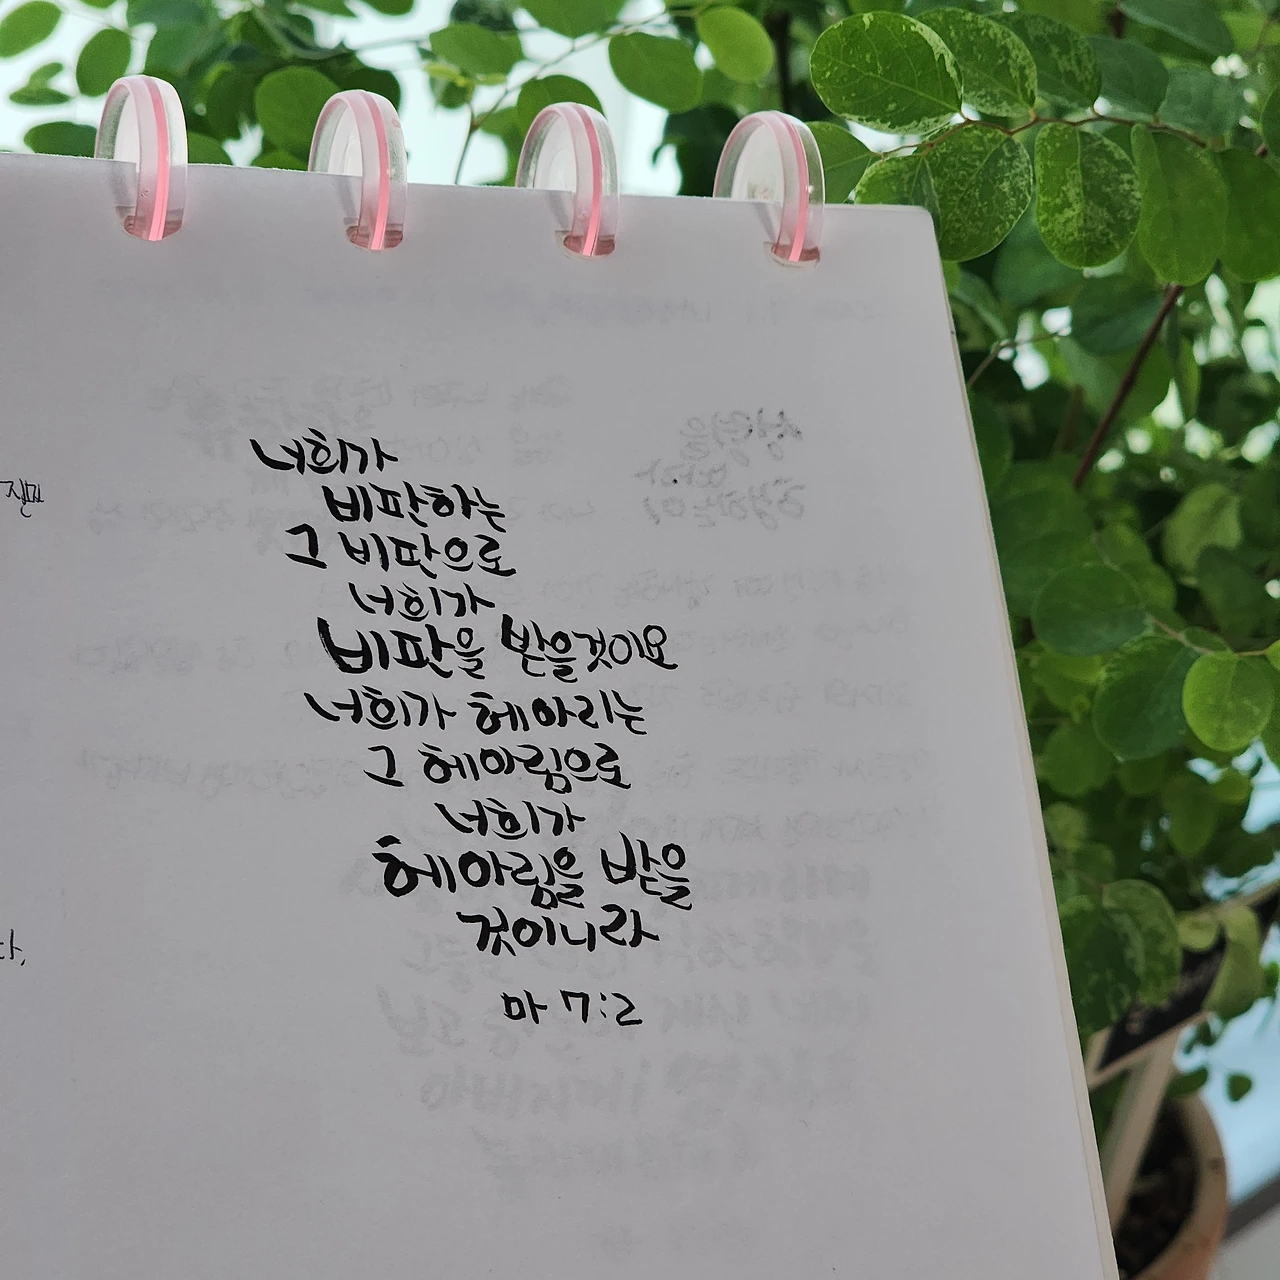 너희가
비판하는
그 비판으로
너희가
비판을 받을것이요
너희가 헤아리는
그 헤아림으로
너희가
헤아림을 받을
것이니라
마 7:2